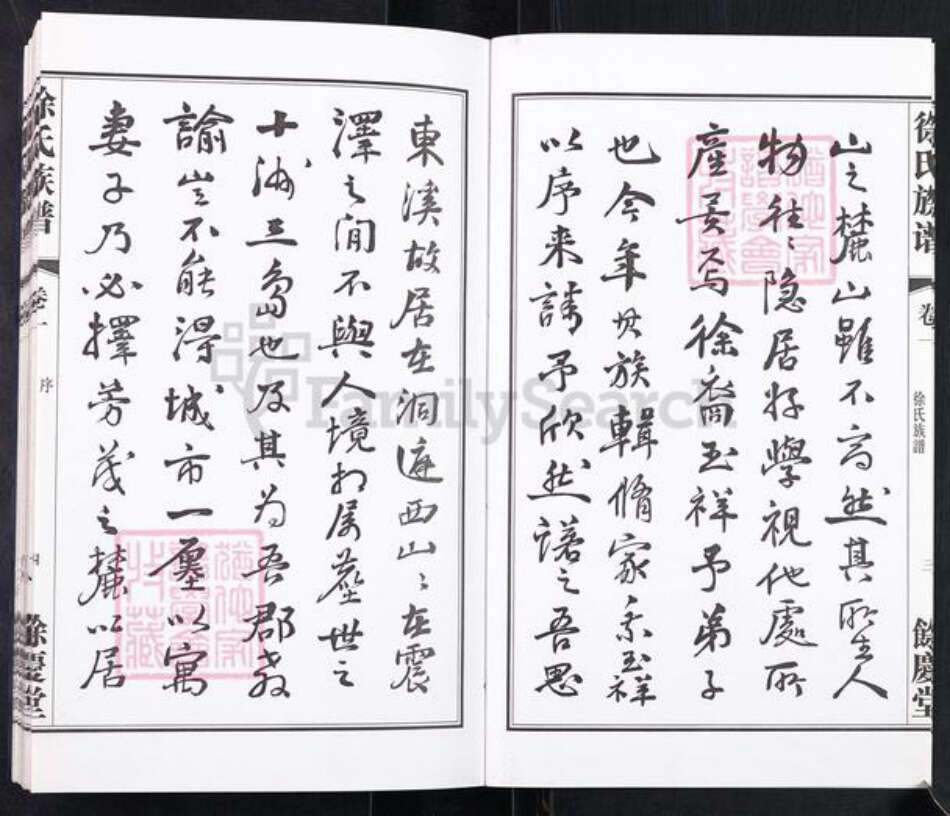 徐氏族譜
卷一
徐氏族譜
三
餘慶堂
山之麓山雖不高然其所生人
物往往隐居好學視他處所
產异焉徐裔玉祥予弟子
也今年其族輯脩家乘玉祥
以序来請予欣然諾之吾思
東溪故居在洞庭西山山在震
澤之间不與人境相属塵世之
十洲三島也及其为吾郡教
諭豈不能得城市一廛以寓
妻子乃必擇芳茂之麓以居
徐氏族譜
卷一
序
四
餘慶堂
FamilySearch